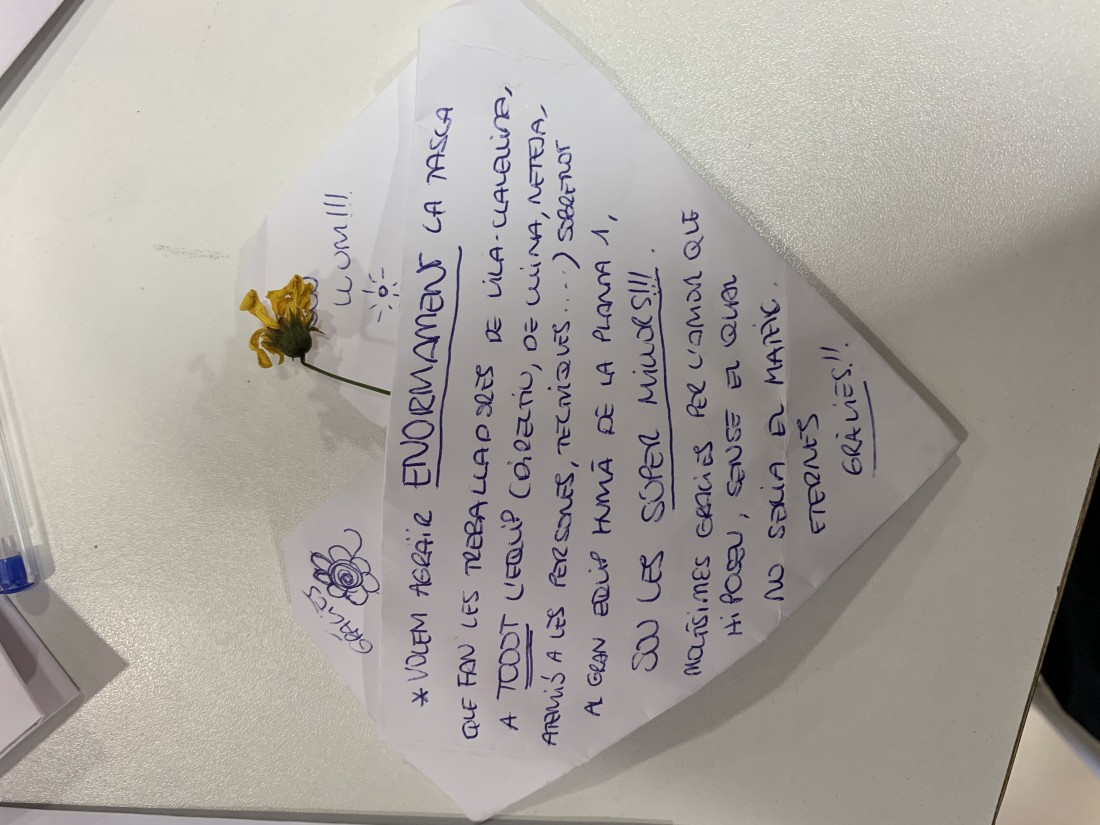 GRÀCIES
LLUM!!!
* VOLEM AGRAÏR ENORMAMENT LA TASCA
QUE FAN LES TREBALLADORES DE VILA-CLAVELINA,
A TOOOT L'EQUIP (DIRECTIU, DE CUINA, NETEJA,
ATENCIÓ A LES PERSONES, TÈCNIQUES....) SOBRETOT
AL GRAN EQUIP HUMÀ DE LA PLANTA 1,
SOU LES SÚPER MILLORS!!!.
MOLTÍSIMES GRÀCIES PER L'AMOR QUE
HI POSEU, SENSE EL QUAL
NO SERIA EL MATEIX.
ETERNES
GRÀCIES!!